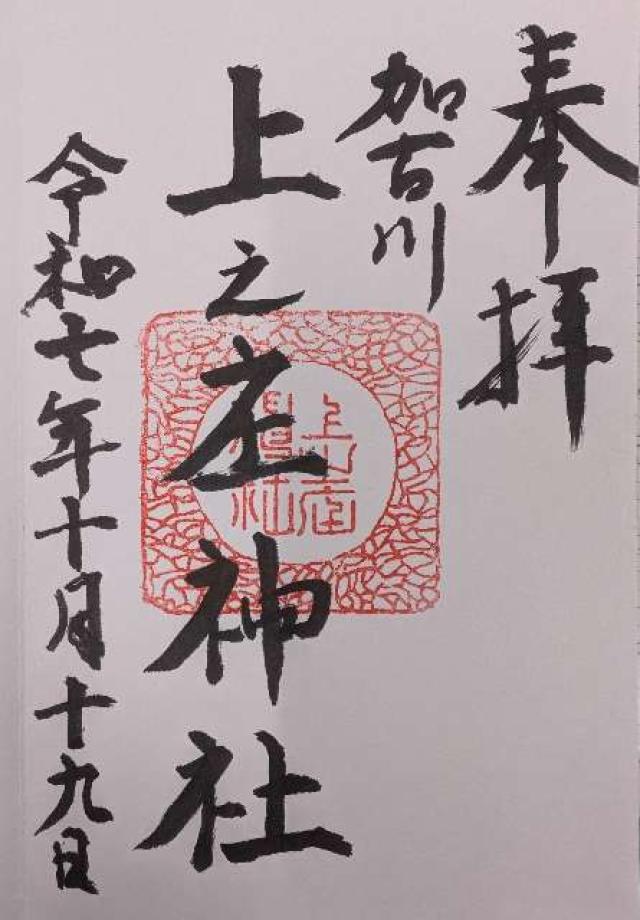 奉拝
加古川
上之庄神社
令和七年十月十九日
上之庄
神社